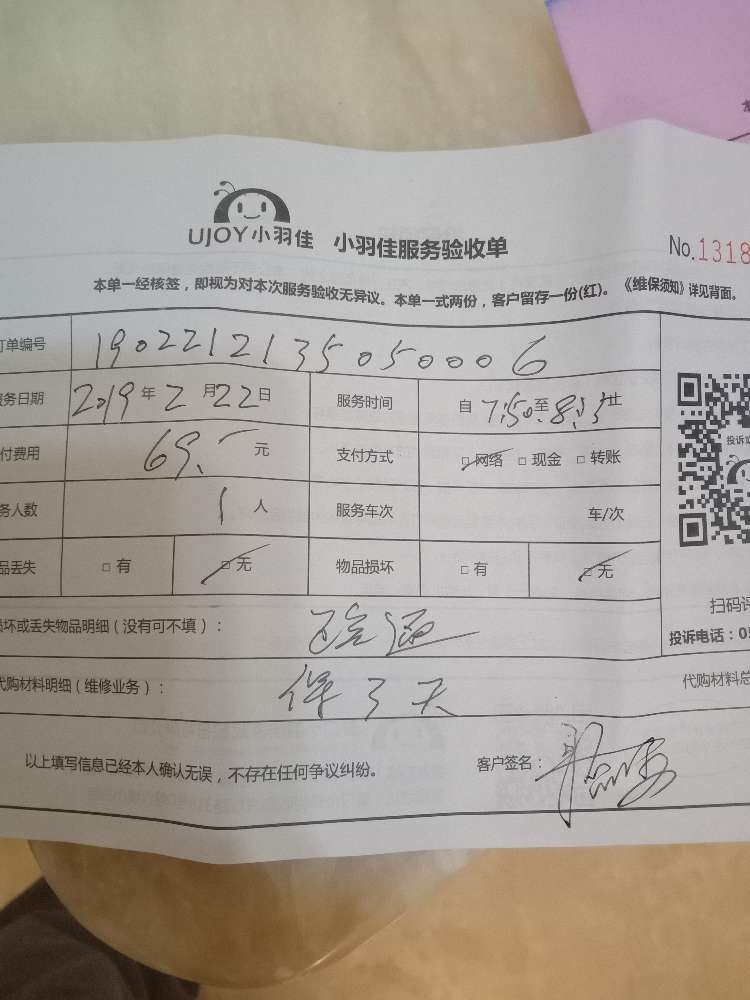 UJOY小羽佳 小羽佳服务验收单 No.1318
本单一经核签，即视为对本次服务验收无异议。本单一式两份，客户留存一份(红)。《维保须知》详见背面。
订单编号 1902212135050006
服务日期 2019年2月22日 服务时间 自7:50至8:35止
付费用 69.元 支付方式 □网络 □现金 □转账
务人数 1人 服务车次 车/次
品丢失 □有 □无 物品损坏 □有 □无
投诉
扫码评
损坏或丢失物品明细（没有可不填）：
投诉电话：05
代购材料明细（维修业务）： 保3天 代购材料总
以上填写信息已经本人确认无误，不存在任何争议纠纷。 客户签名：